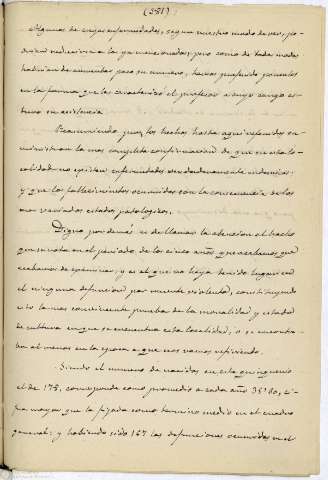 (381)
Algunas de cuyas enfermedades, segun nuestro modo de ver, po-
drian reducirse a las ya mencionadas; pero como de todos modos
habrian de aumentar poco su numero, hemos preferido ponerlos
en la forma que las caracterizó el profesor a cuyo cargo es-
tuvo su asistencia.
Resumiendo pues, los hechos hasta aqui referidos su-
ministran la mas completa confirmacion de que en esta lo-
calidad no existen enfermedades verdaderamente endemicas;
y que los fallecimientos ocurridos son la consecuencia de los
mas variados estados patologicos.
Digno por demás es de llamar la atencion el hecho
que se nota en el periodo de los cinco años que
acabamos de examinar, y es el que no haya tenido lugar en
él ninguna defuncion por muerte violenta, constituyendo
esto la mas convincente prueba de la moralidad y estado
de cultura en que se encuentra esta localidad, o se encontra-
ba al menos en la epoca a que nos vamos refiriendo.
Siendo el numero de nacidos en este quinquenio
el de 178, corresponde como promedio a cada año 35'60, ci-
fra mayor que la fijada como termino medio en el cuadro
general: y habiendo sido 157 las defunciones ocurridas en el